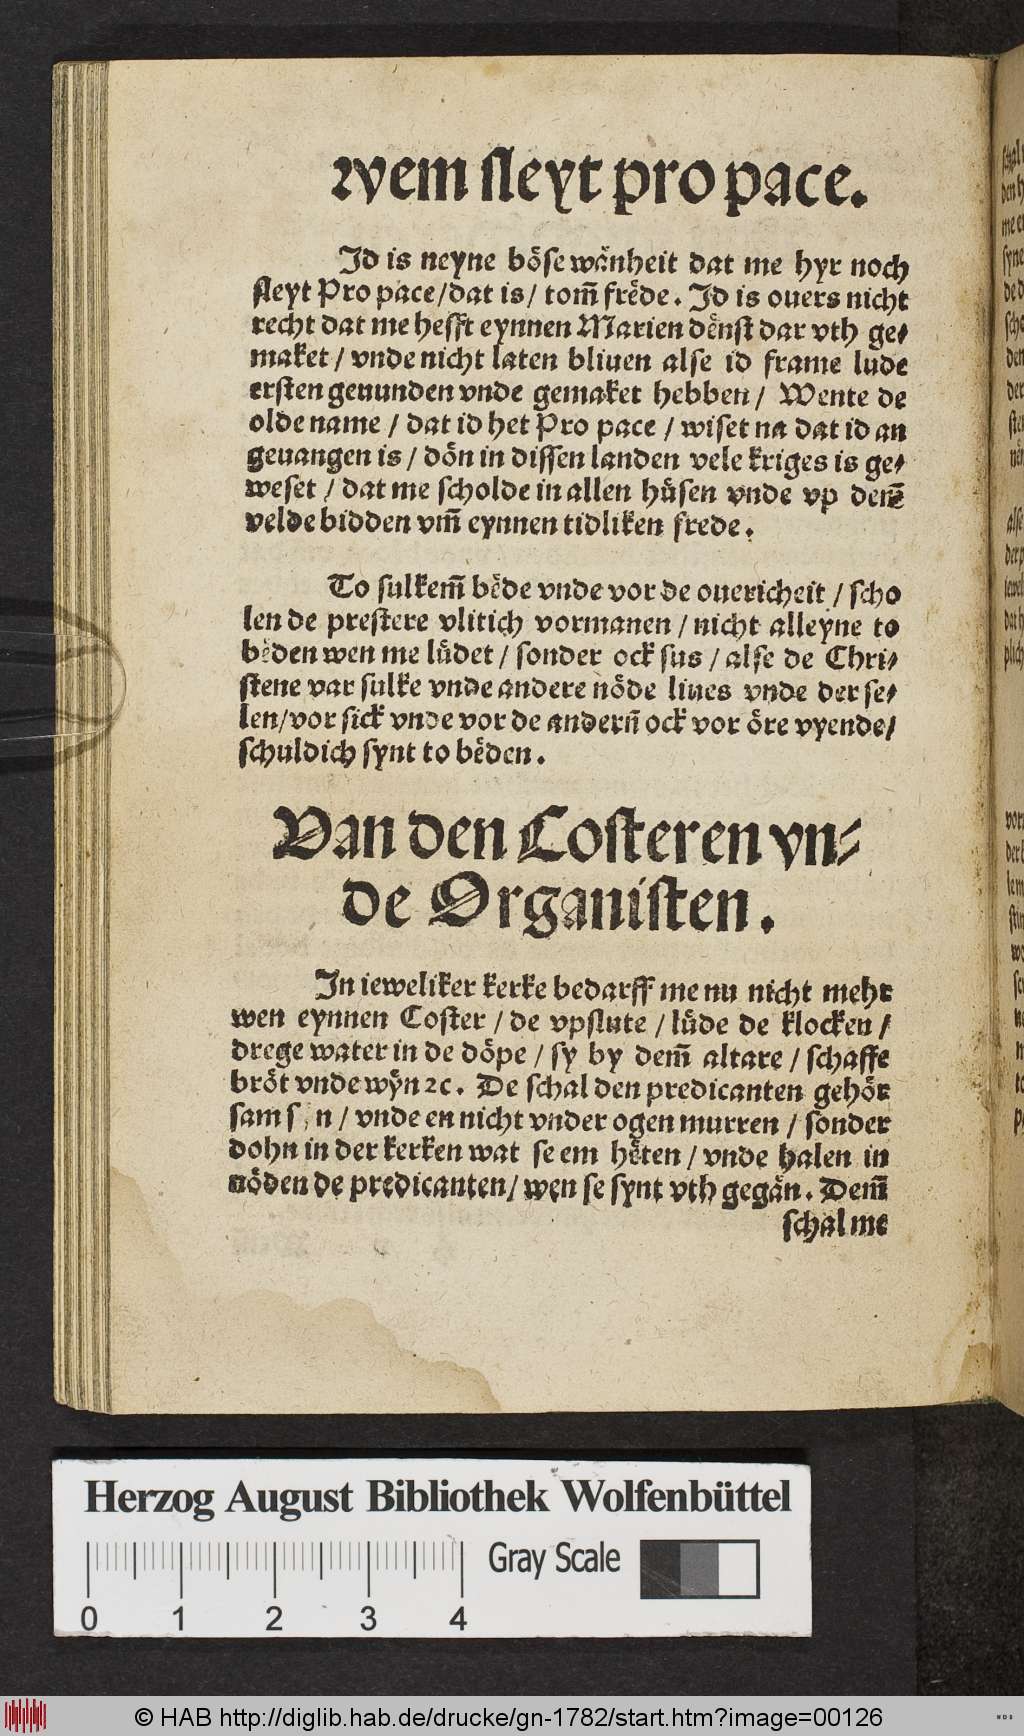 wem sleyt pro pace.
Jd is neyne böse wånheit dat me hyr noch
sleyt Pro pace/dat is/ tom̃ frede. Jd is ouers nicht
recht dat me hefft eynnen Marien dënst dar vth ge⸗
maket / vnde nicht laten bliuen alse id frame lude
ersten geuunden vnde gemaket hebben/ Wente de
olde name / dat id het Pro pace / wiset na dat id an
geuangen is / dön in dissen landen vele kriges is ge⸗
weset / dat me scholde in allen hüsen vnde vp dem̃
velde bidden vm̃ eynnen tidliken frede.
To sulkem̃ bëde vnde vor de ouericheit / scho
len de prestere vlitich vormanen / nicht alleyne to
bëden wen me lüdet / sonder ock sus / alse de Chri⸗
stene var sulke vnde andere nöde liues vnde der se⸗
len/vor sick vnde vor de anderñ ock vor öre vyende/
schuldich synt to bëden.
Van den Costeren vn⸗
de Organisten.
Jn ieweliker kerke bedarff me nu nicht mehr
wen eynnen Coster / de vpslute / lüde de klocken /
drege water in de döpe / sy by dem̃ altare / schaffe
bröt vnde wÿn ꝛc. De schal den predicanten gehör
sam s n / vnde en nicht vnder ogen murren / sonder
dohn in der kerken wat se em hëten / vnde halen in
nöden de predicanten/ wen se synt vth gegån. Dem̃
schal me
Herzog August Bibliothek Wolfenbüttel
Gray Scale
0 1 2 3 4
© HAB http://diglib.hab.de/drucke/gn-1782/start.htm?image=00126